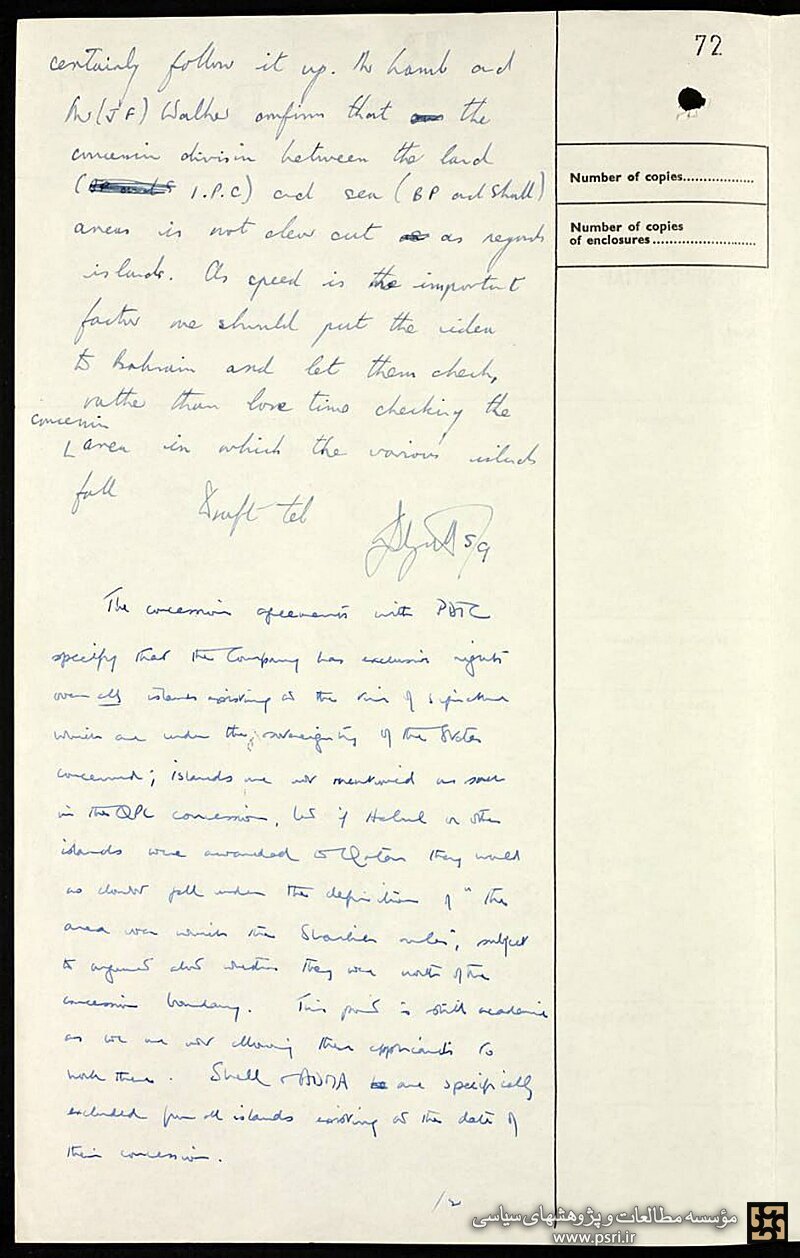 72
certainly follow it up. Mr Lamb and
Mr (J F) Walker confirm that the
concession division between the land
(I.P.C) and sea (BP and Shell)
areas is not clear cut as regards
islands. As speed is the important
factor we should put the idea
to Bahrain and let them check,
rather than lose time checking the
concession
area in which the various islands
fall
Draft tel
5/9
Number of copies
Number of copies
of enclosures
The concession agreements with PDTC
specify that the Company has exclusive rights
over all islands existing at the time of signature
which are under the sovereignty of the States
concerned; islands are not mentioned as such
in the QPC concession, but if Halul or other
islands were awarded to Qatar they would
no doubt fall under the definition of "the
area over which the Shaikh rules", subject
to argument about whether they were north of the
concession boundary. This point is still academic
as we are not allowing these applicants to
work there. Shell + ADMA are specifically
excluded from all islands existing at the date of
their concession.
/2
مؤسسه مطالعات و پژوهشهای سیاسی
www.psri.ir